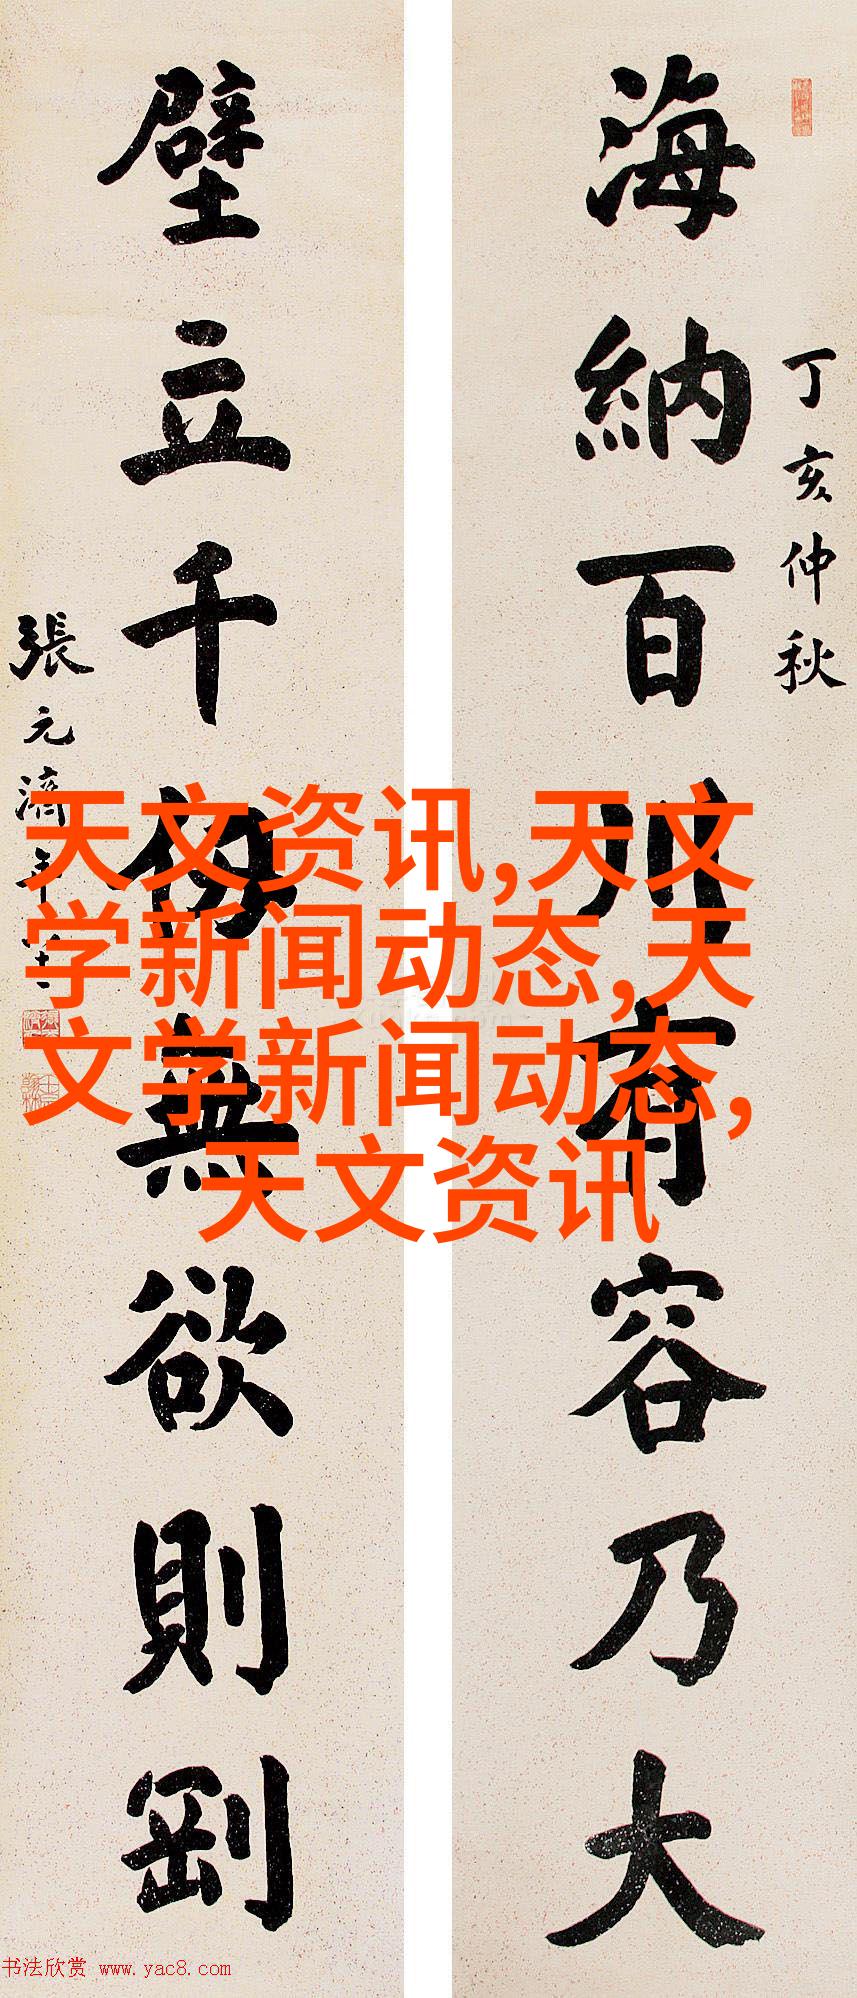 海納百川有容乃大
丁亥仲秋
壁立千仞無欲則剛
張元濟年八十一
天文资讯,天文
学新闻动态,天
文学新闻动态,
天文资讯
书法欣赏 www.yac8.com